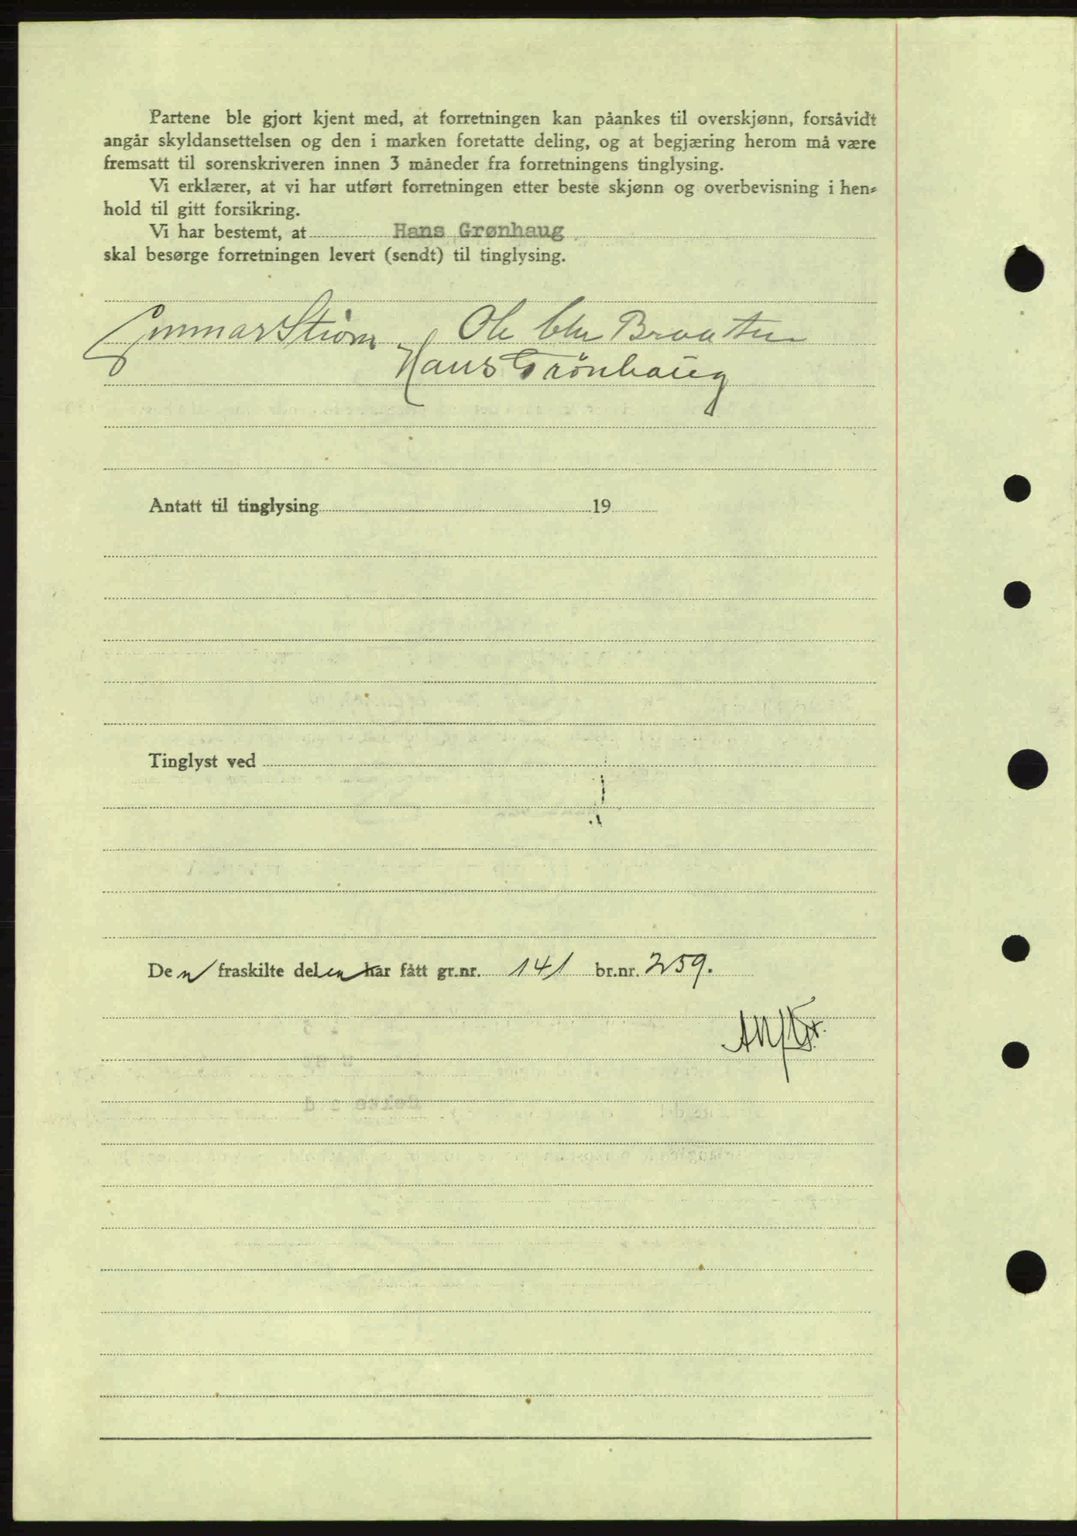 Partene ble gjort kjent med, at forretningen kan påankes til overskjønn, forsåvidt
angår skyldansettelsen og den i marken foretatte deling, og at begjæring herom må være
fremsatt til sorenskriveren innen 3 måneder fra forretningens tinglysing.
Vi erklærer, at vi har utført forretningen etter beste skjønn og overbevisning i hen-
hold til gitt forsikring.
Vi har bestemt, at Hans Grønhaug
skal besørge forretningen levert (sendt) til tinglysing.
Gunnar Strøm Ole Chr Braaten
Hans Grønhaug
Antatt til tinglysing 19
Tinglyst ved
Den fraskilte delen har fått gr.nr. 141 br.nr. 259.